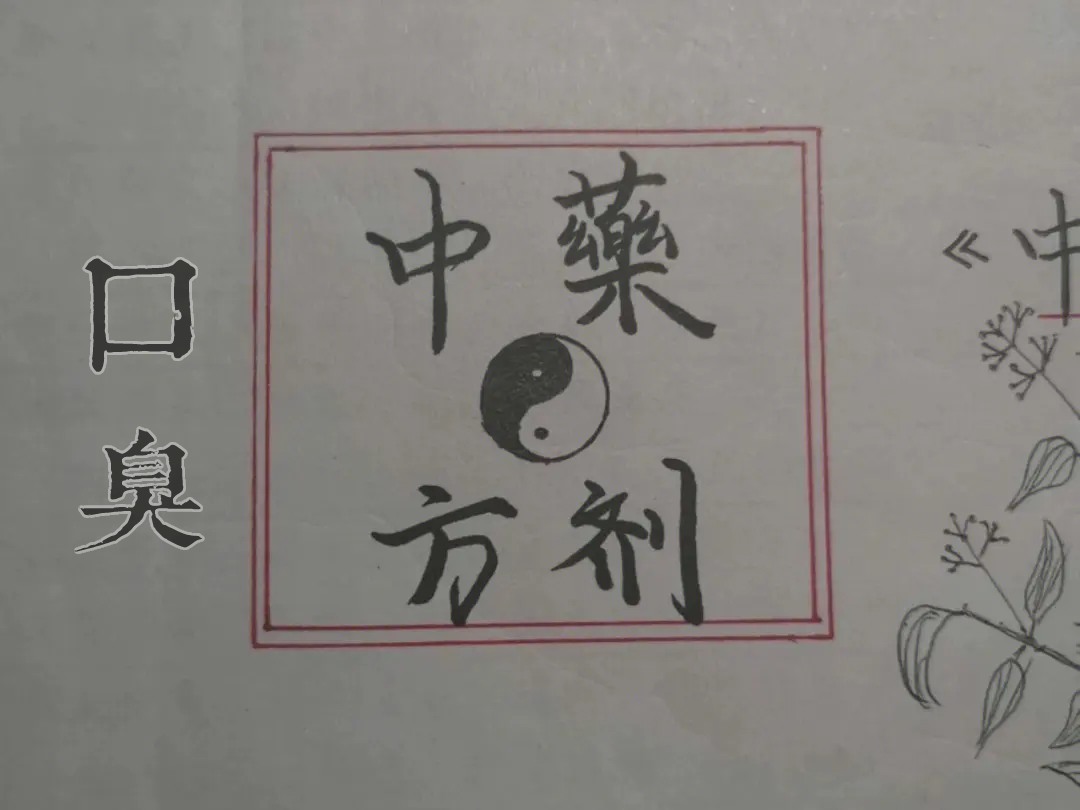 口臭
中藥
方剂
《中